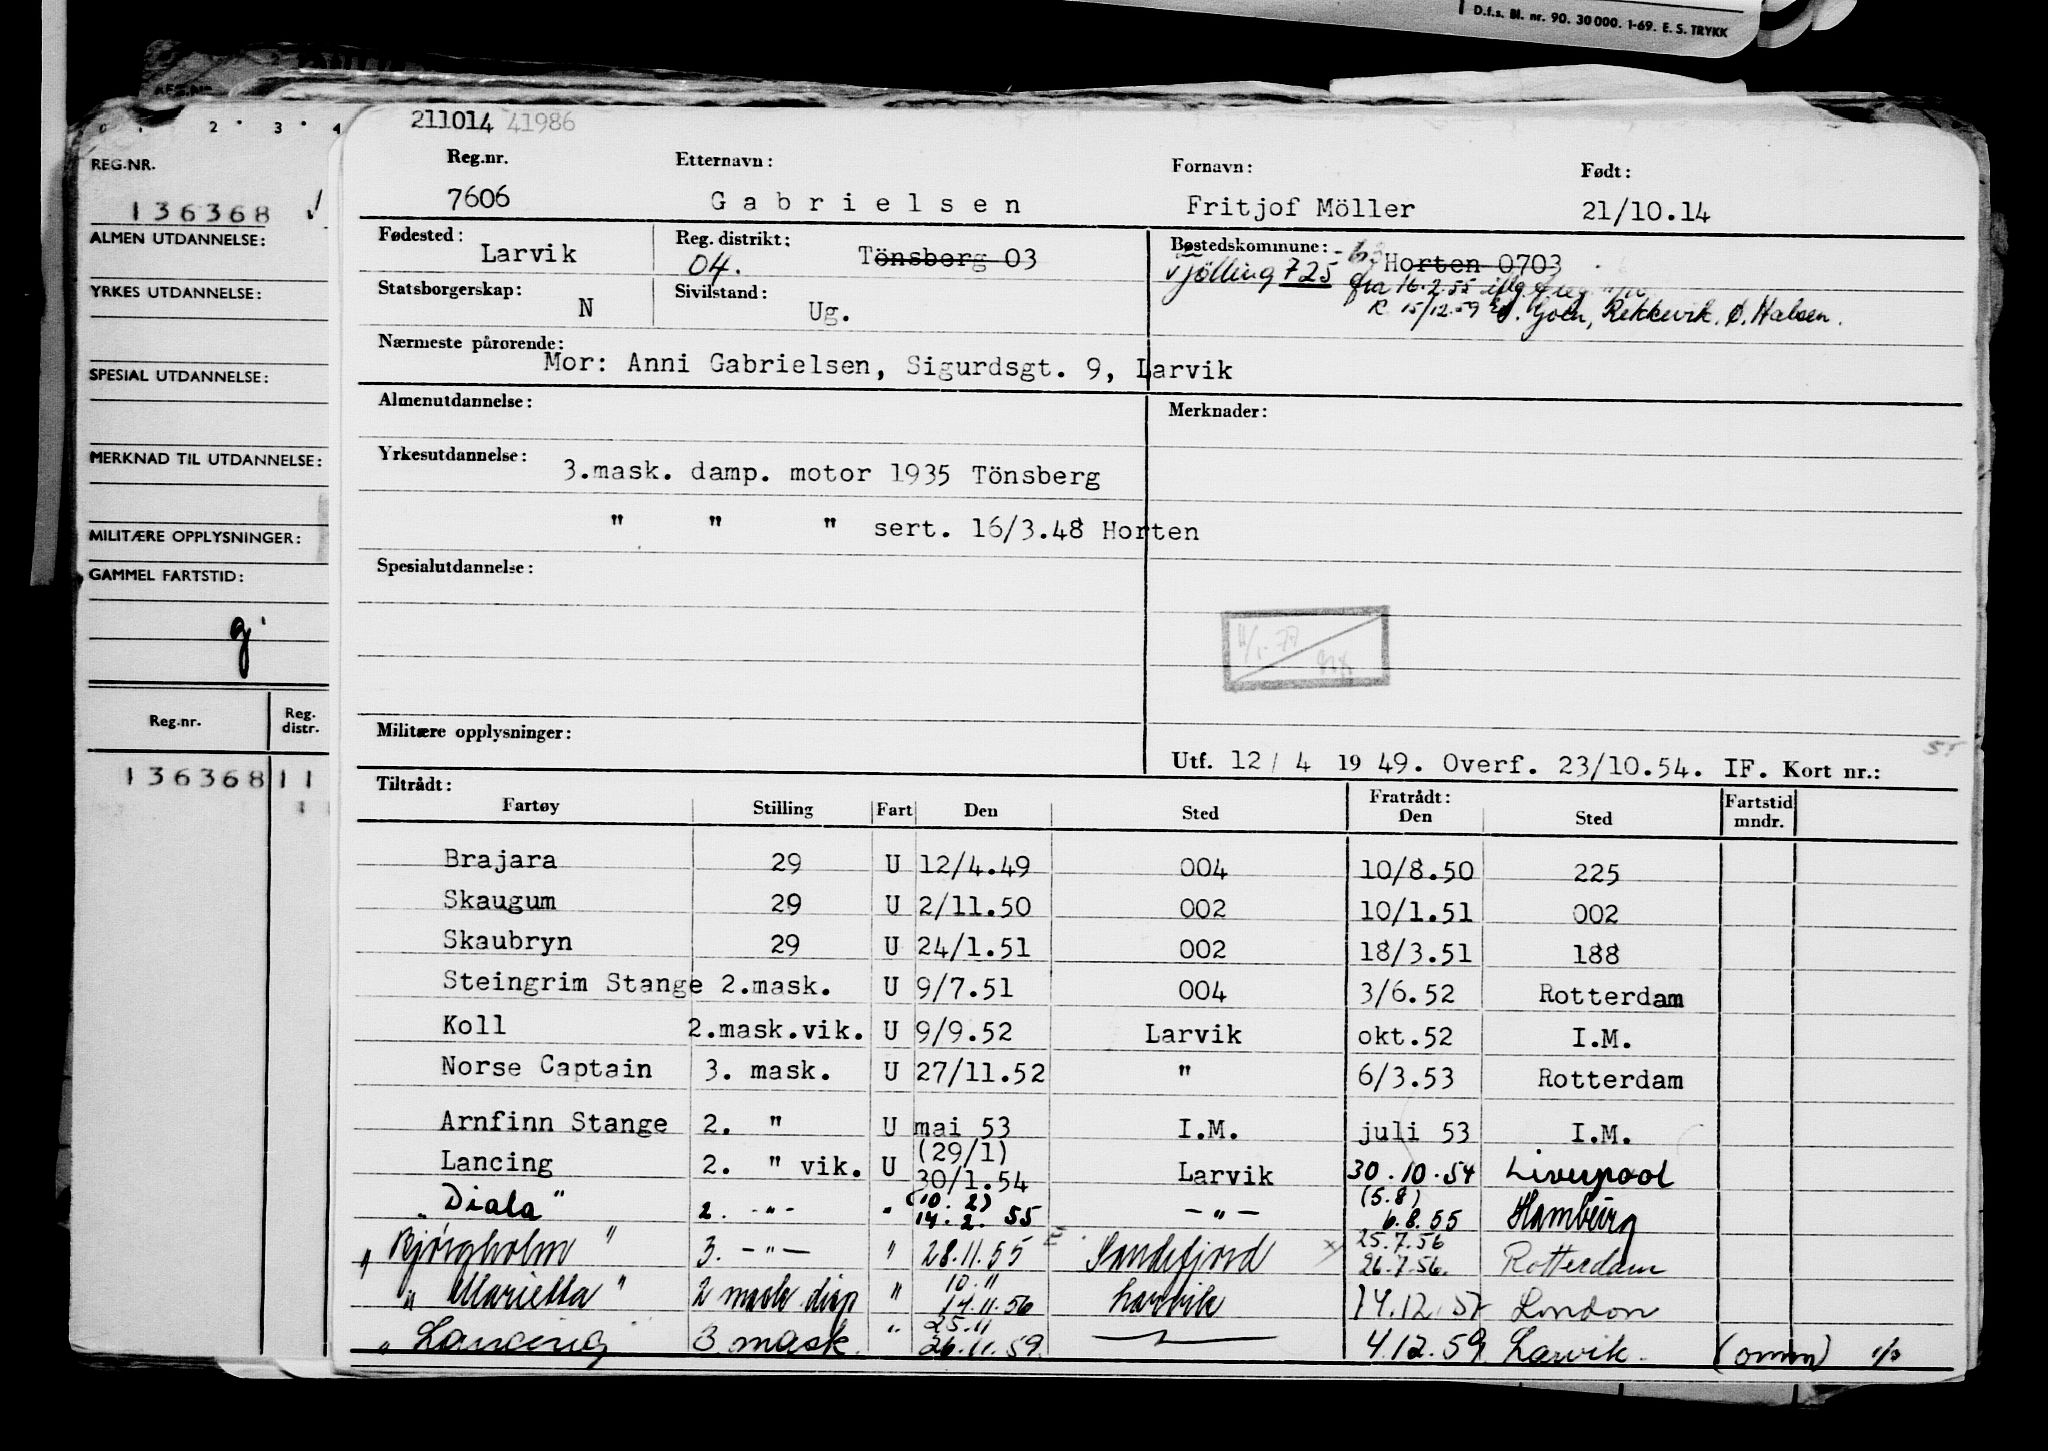 D.f.s. Bl. nr. 90. 30 000. 1-69. E. S. TRYKK
REG.NR.
136368
ALMEN UTDANNELSE:
YRKES UTDANNELSE:
SPESIAL UTDANNELSE:
MERKNAD TIL UTDANNELSE:
MILITÆRE OPPLYSNINGER:
GAMMEL FARTSTID:
g.
Reg.nr. Reg. distr.
136368 11
211014 41986
Reg.nr. Etternavn: Fornavn: Født:
7606 Gabrielsen Fritjof Möller 21/10.14
Fødested: Larvik Reg. distrikt: Tönsberg 03 04. Bostedskommune: Horten 0703
Tjölling 725 fra 16.2.55
Statsborgerskap: N Sivilstand: Ug. R. 15/12.59 Rekkevik, Halsen.
Nærmeste pårørende:
Mor: Anni Gabrielsen, Sigurdsgt. 9, Larvik
Almenutdannelse: Merknader:
Yrkesutdannelse: 3.mask. damp. motor 1935 Tönsberg
" " " sert. 16/3.48 Horten
Spesialutdannelse:
Militære opplysninger:
Utf. 12/4 1949. Overf. 23/10.54. IF. Kort nr.:
Tiltrådt: Fratrådt:
Fartøy Stilling Fart Den Sted Den Sted Fartstid mndr.
Brajara 29 U 12/4.49 004 10/8.50 225
Skaugum 29 U 2/11.50 002 10/1.51 002
Skaubryn 29 U 24/1.51 002 18/3.51 188
Steingrim Stange 2.mask. U 9/7.51 004 3/6.52 Rotterdam
Koll 2.mask.vik. U 9/9.52 Larvik okt.52 I.M.
Norse Captain 3. mask. U 27/11.52 " 6/3.53 Rotterdam
Arnfinn Stange 2. " U mai 53 I.M. juli 53 I.M.
Lancing 2. " vik. U (29/1) 30/1.54 Larvik 30.10.54 Liverpool
"Diala" 2. -"- " (10.2) 14.2.55 -"- (5.8) 6.8.55 Hamburg
"Bjørgholm" 3. -"- " 28.11.55 Sandefjord 25.7.56 26.7.56. Rotterdam
"Mariella" 2 mask disp " 10.11 14.11.56 Larvik 14.12.57 London
"Lancing 3 mask. " 25.11 26.11.59. 4.12.59 Larvik.